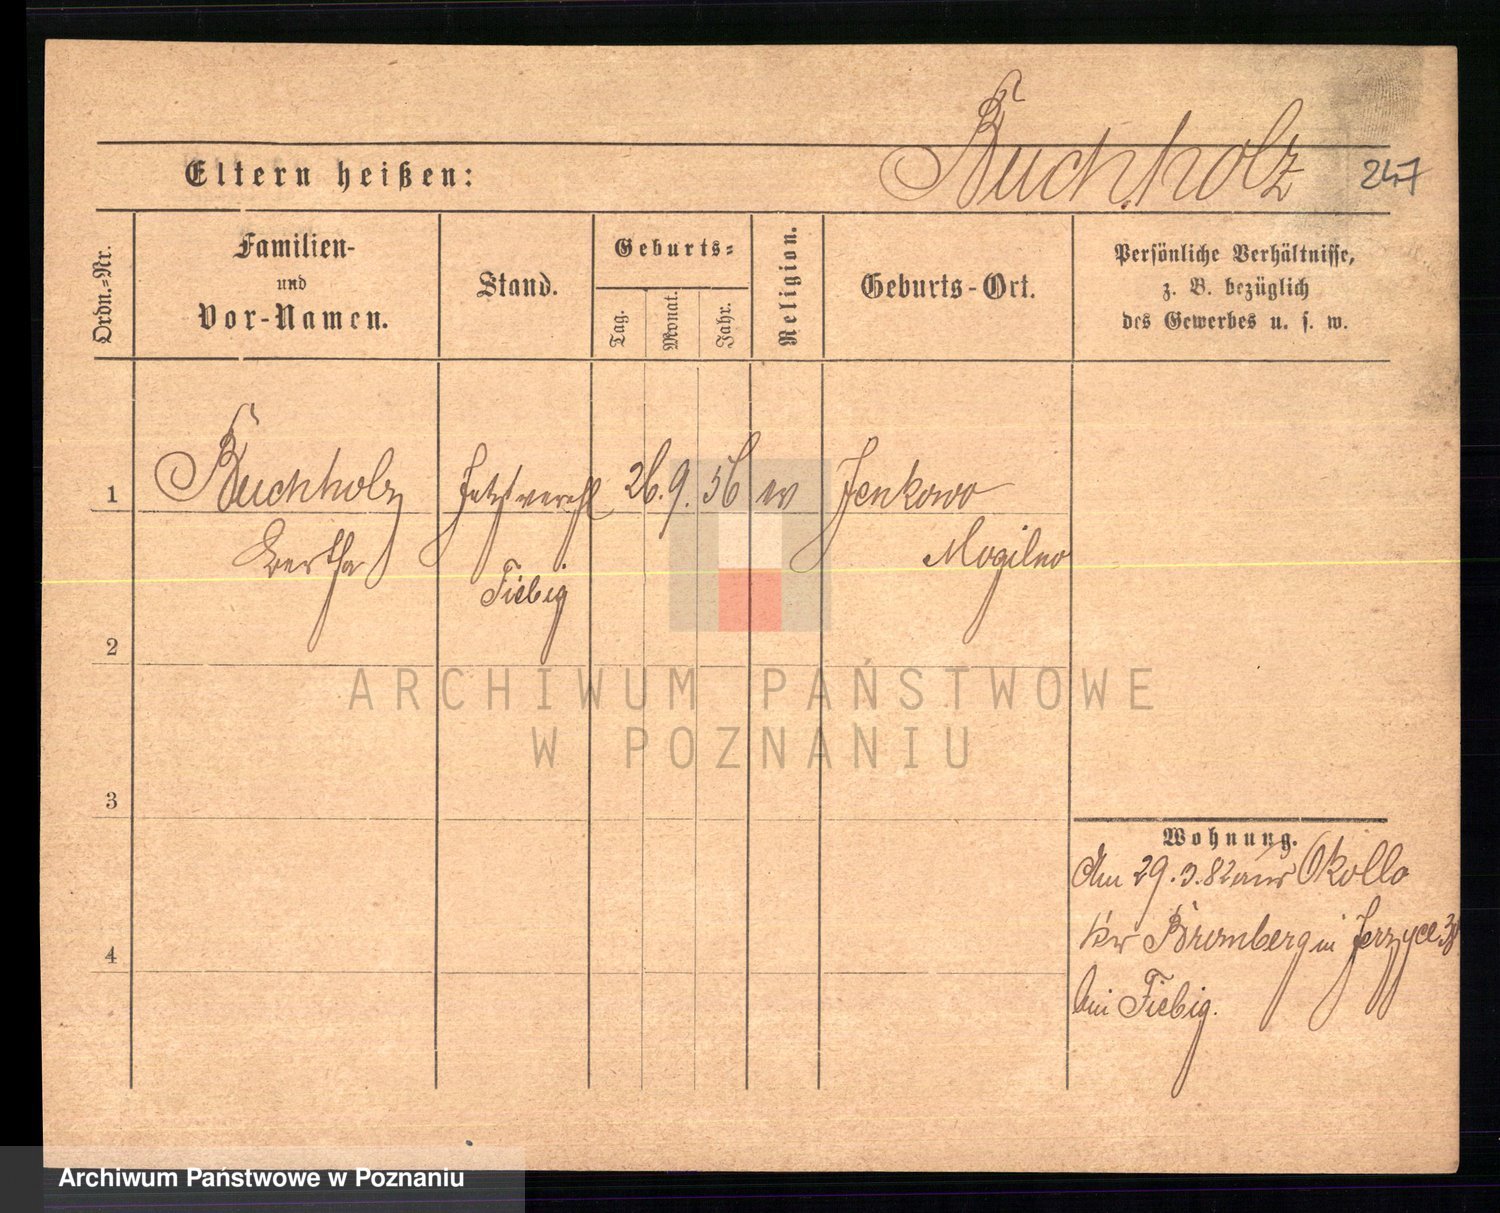 Buchholz
247
Eltern heißen:
Ordn.=Nr.
Familien-
und
Vor-Namen.
Stand.
Geburts=
Tag.
Monat.
Jahr.
Religion.
Geburts-Ort.
Persönliche Verhältnisse,
z. B. bezüglich
des Gewerbes u. s. w.
1 Buchholz jetzt verehl 26. 9. 56 ev Jenkowo
Bertha Fiebig Mogilno
2
3
4
Wohnung.
Am 29.3.82 aus Okollo
Kr Bromberg in Jerzyce
bei Fiebig.
ARCHIWUM PAŃSTWOWE
W POZNANIU
Archiwum Państwowe w Poznaniu